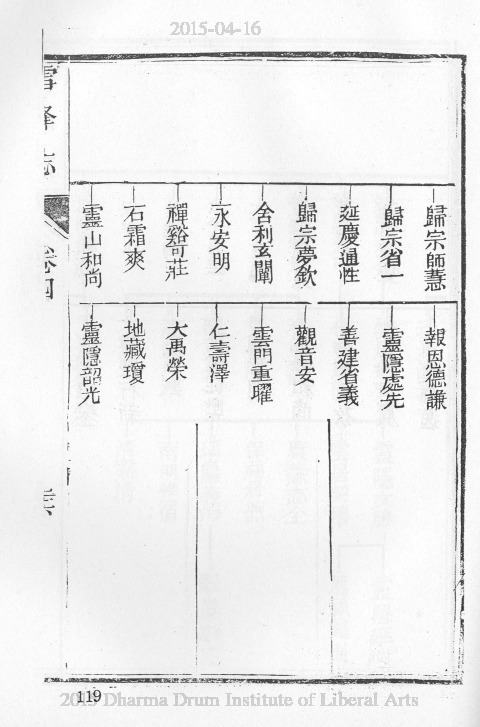 2015-04-16
歸宗師慧
歸宗省一
延慶通性
歸宗夢欽
舍利玄闡
永安明
禪谿可莊
石霜爽
靈山和尚
報恩德謙
靈隱處先
善建省義
觀音安
雲門重曜
仁壽澤
大禹榮
地藏瓊
靈隱韶光
卷四
119
2015 Dharma Drum Institute of Liberal Arts